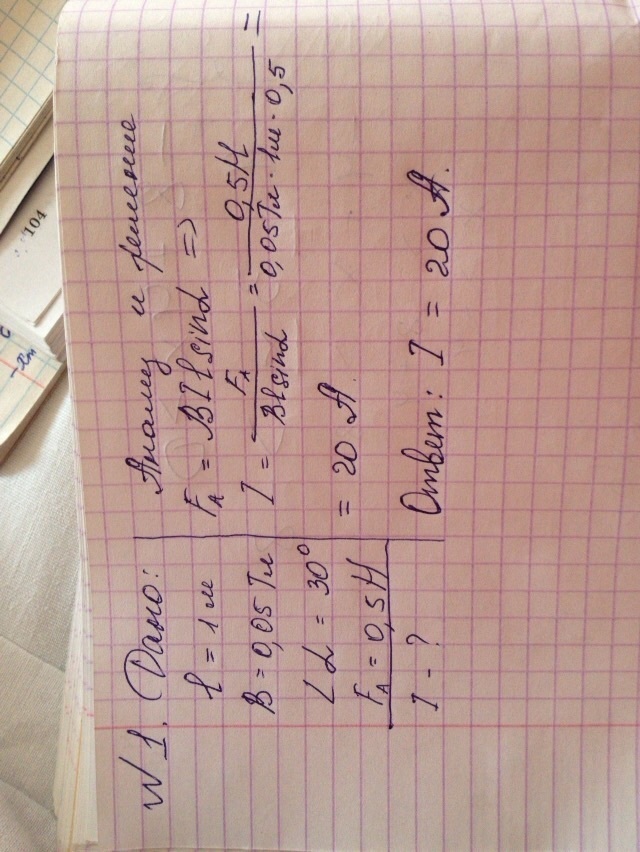 N 1. Дано:
l = 1 м
B = 0,05 Тл
∠α = 30°
Fᴀ = 0,5 Н
I - ?
Анализ и решение
Fᴀ = BIlsinα =>
I = Fᴀ / Blsinα = 0,5Н / 0,05Тл · 1м · 0,5 =
= 20 А
Ответ: I = 20 А.
104